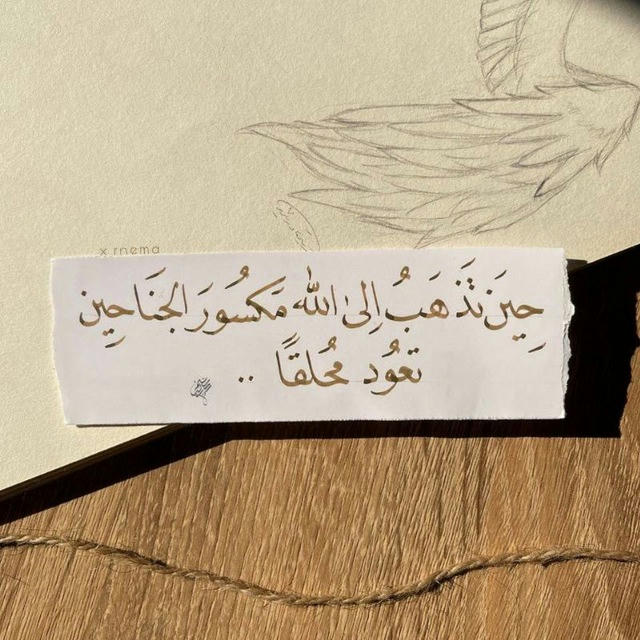 x rnema
حِينَ تَذهَبُ إلىٰ الله مَكسُورَ الجَنَاحِين
تعُود مُحلقًا ..